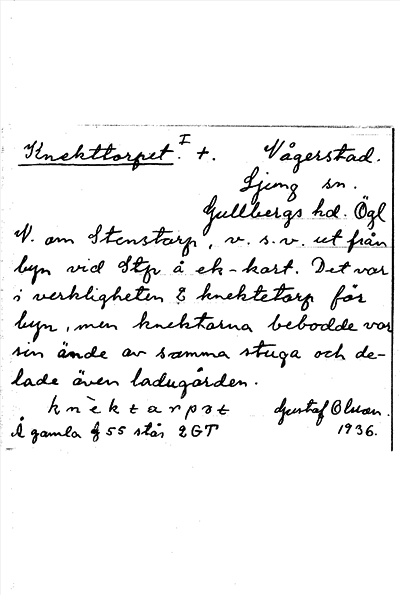 Knekttorpet. I +. Vågerstad.
Ljung sn.
Gullbergs hd. Ögl
N. om Stenstorp, v. s. v. ut från
byn vid Stp å ek-kart. Det var
i verkligheten 2 knektetorp för
byn, men knektarna bebodde var
sin ände av samma stuga och de-
lade även ladugården.
knèktarpət Gustaf Olson.
Å gamla 55 står 2GT 1936.